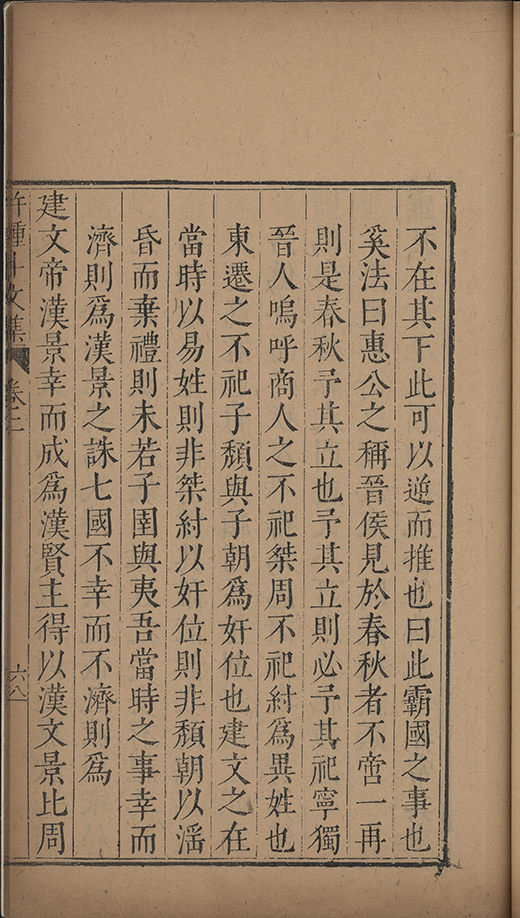 不在其下此可以逆而推也曰此霸國之事也
奚法曰惠公之稱晉侯見於春秋者不啻一再
則是春秋予其立也予其立則必予其祀寧獨
晉人嗚呼商人之不祀桀周不祀紂爲異姓也
東遷之不祀子頹與子朝爲奸位也建文之在
當時以易姓則非桀紂以奸位則非頹朝以淫
昏而棄禮則未若子圉與夷吾當時之事幸而
濟則爲漢景之誅七國不幸而不濟則爲
建文帝漢景幸而成爲漢賢主得以漢文景比周
許鍾斗文集 卷二 六八